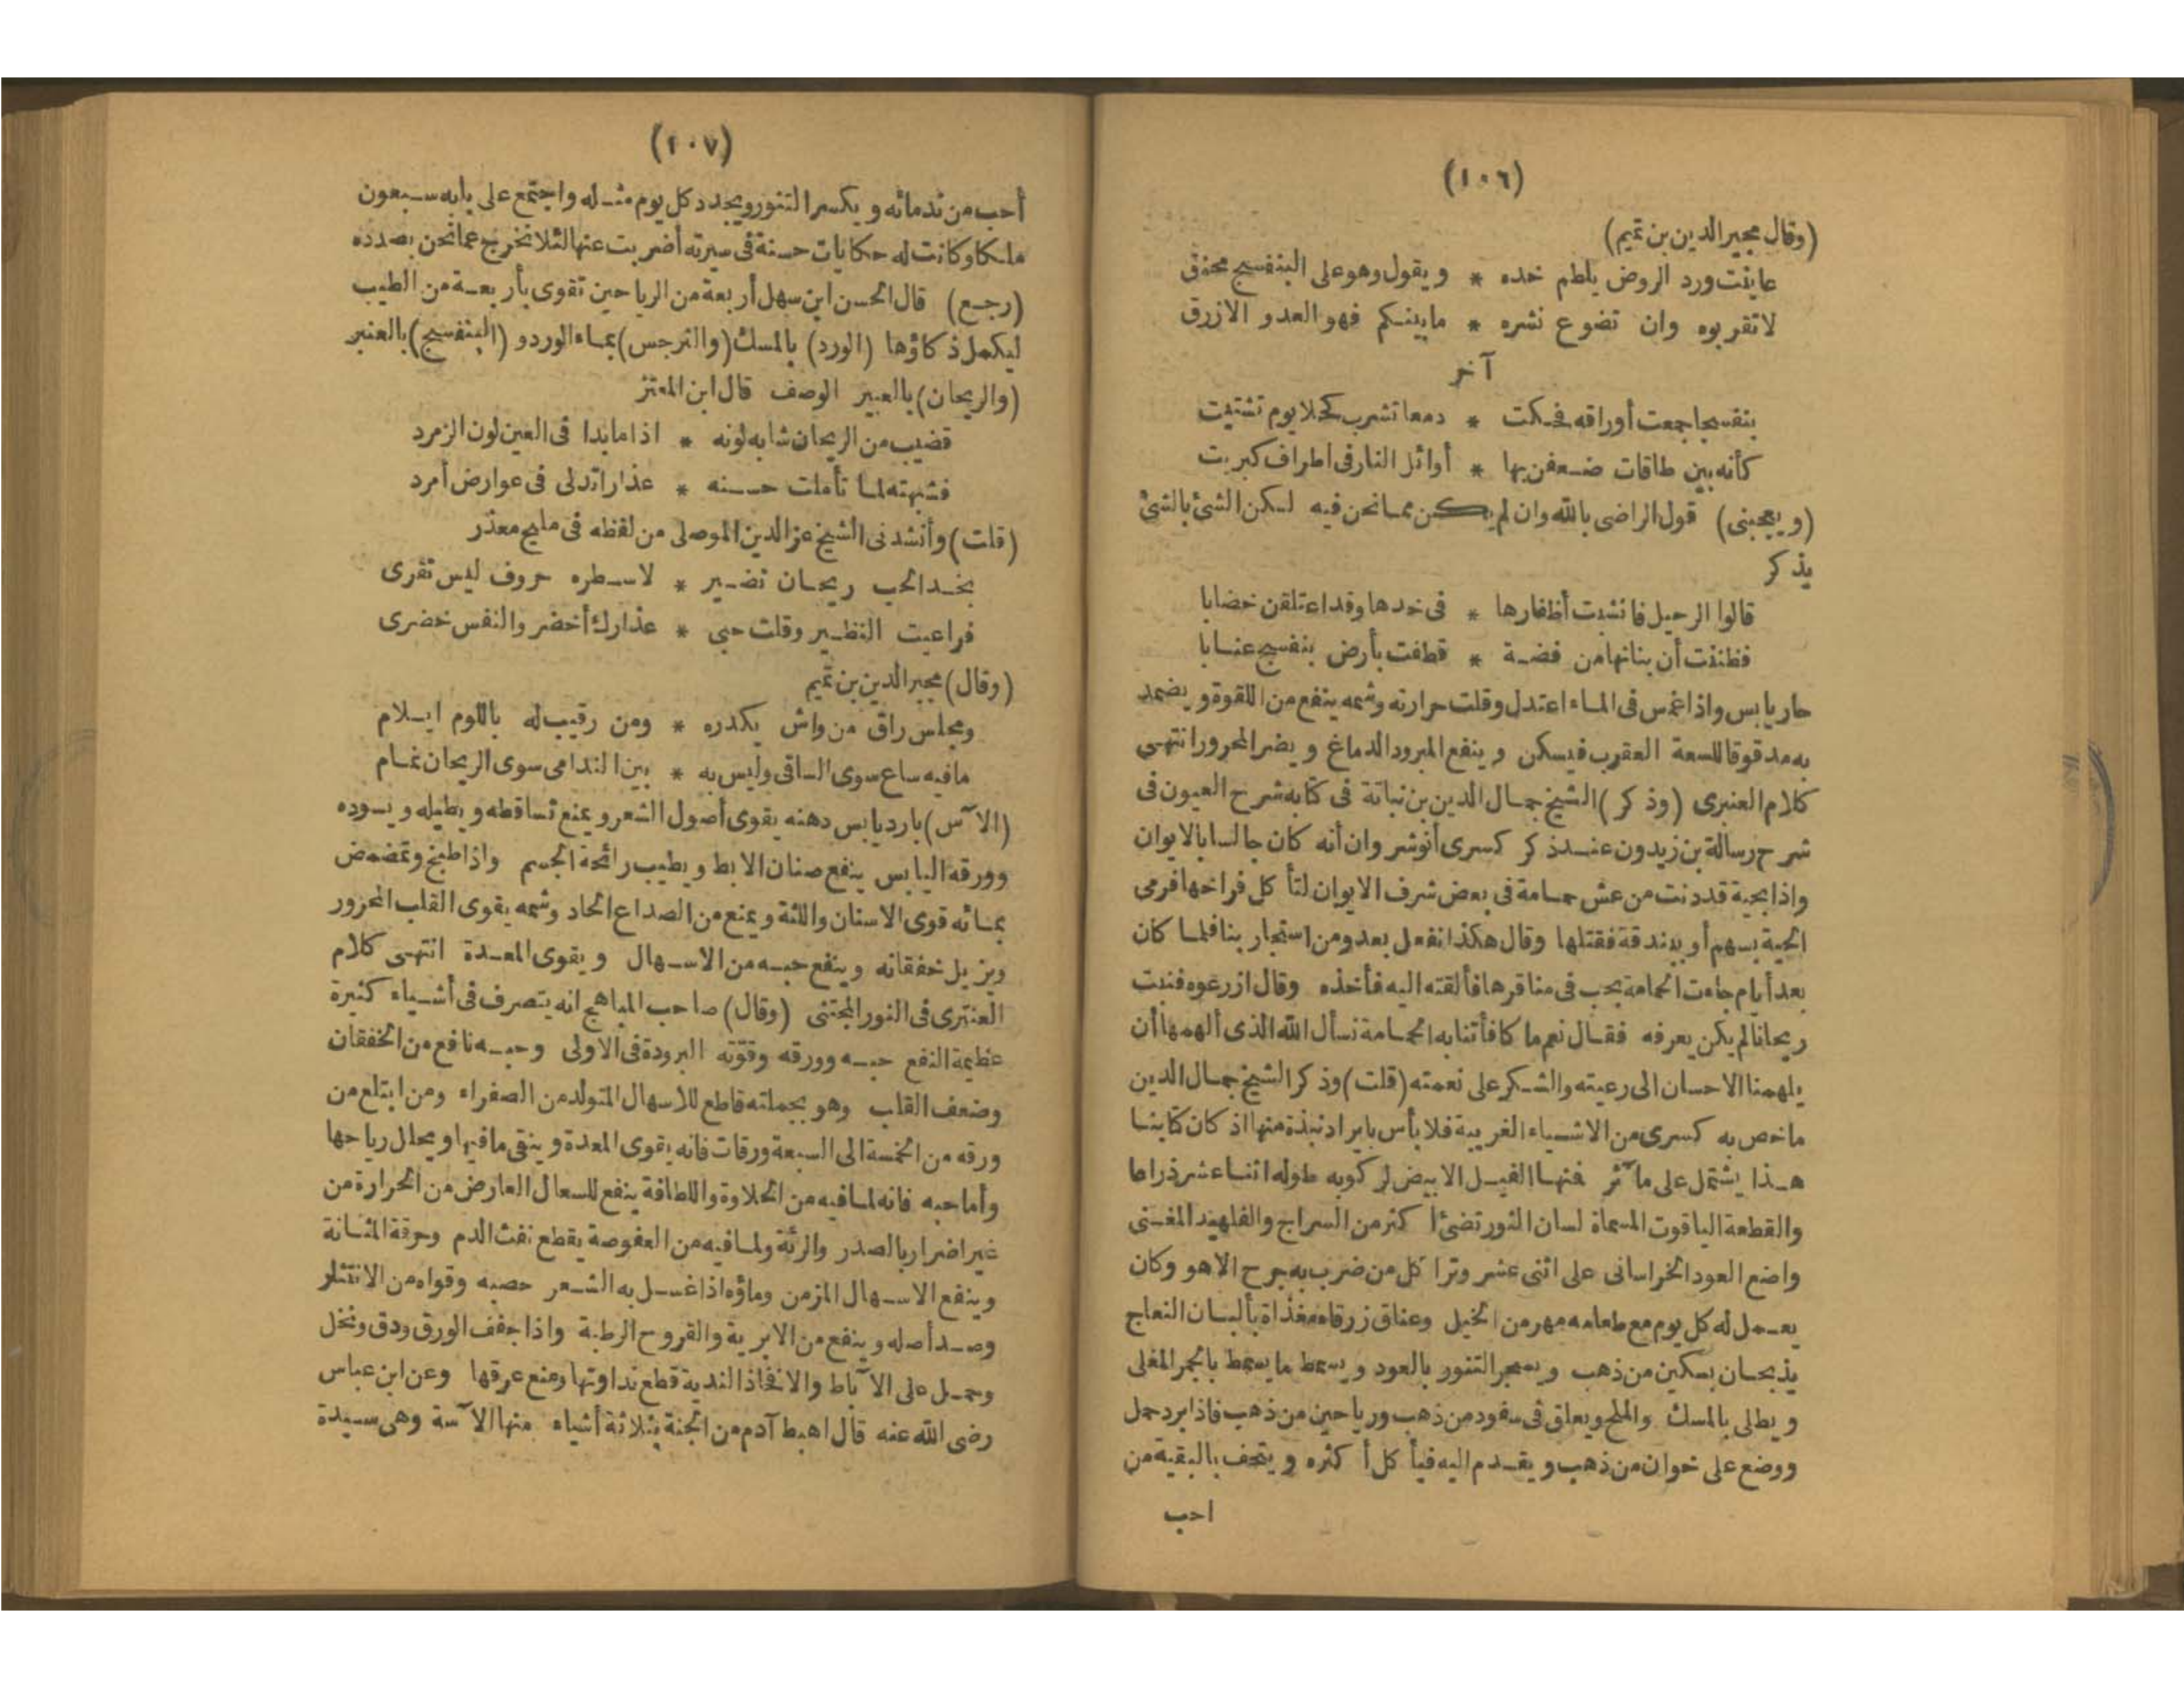 (١٠٦)
(وقال مجير الدين بن تميم)
عاينت ورد الروض يلطم خده * ويقول وهو على البنفسج محنق
لا تقربوه وان تضوع نشره * ما بينكم فهو العدو الازرق
آخر
بنفسجا جمعت أوراقه فحكت * دمعا تشرب كحلا يوم تشتيت
كأنه بين طاقات ضعفن بها * أوائل النار فى اطراف كبريت
(ويعجبنى) قول الراضى بالله وان لم يكن مما نحن فيه لكن الشئ بالشئ
يذكر
قالوا الرحيل فانشبت أظفارها * فى خدها وقد اعتلقن خضابا
فظننت أن بنانها من فضة * قطفت بأرض بنفسج عنابا
حار يابس واذا غمس فى الماء اعتدل وقلت حرارته وشمه ينفع من اللقوة ويضمد
به مدقوقا للسعة العقرب فيسكن وينفع المبرود الدماغ ويضر المحرور انتهى
كلام العنبرى (وذكر) الشيخ جمال الدين بن نباتة فى كتابه شرح العيون فى
شرح رسالة بن زيدون عند ذكر كسرى أنوشروان أنه كان جالسا بالايوان
واذا بحية قد دنت من عش حمامة فى بعض شرف الايوان لتأكل فراخها فرمى
الحية بسهم أو بندقة فقتلها وقال هكذا نفعل بعدو من استجار بنا فلما كان
بعد أيام جاءت الحمامة بحب فى مناقرها فألقته اليه فأخذه وقال ازرعوه فنبت
ريحانا لم يكن يعرفه فقال نعم ما كافأتنا به الحمامة نسأل الله الذى ألهمها أن
يلهمنا الاحسان الى رعيته والشكر على نعمته (قلت) وذكر الشيخ جمال الدين
ما خص به كسرى من الاشياء الغريبة فلا بأس بايراد نبذة منها اذ كان كتابنا
هذا يشتمل على مآثر فنها الفيل الابيض لركوبه طوله اثنا عشر ذراعا
والقطعة الياقوت المسماة لسان الثور تضئ أكثر من السراج والفلهيد المغنى
واضع العود الخراسانى على اثنى عشر وترا كل من ضرب به جرح الا هو وكان
يعمل له كل يوم مع طعامه مهر من الخيل وعناق زرقاء مغذاة بألبان النعاج
يذبحان بسكين من ذهب ويسجر التنور بالعود ويسمط ما يسمط بالخمر المغلى
ويطلى بالمسك والملح ويعلق فى سفود من ذهب ورياحين من ذهب فاذا برد حمل
ووضع على خوان من ذهب ويقدم اليه فيأكل أكثره ويتحف بالبقية من
احب
(١٠٧)
أحب من ندمائه ويكسر التنور ويجدد كل يوم مثله واجتمع على بابه سبعون
ملكا وكانت له حكايات حسنة فى سيرته أضربت عنها لئلا نخرج عما نحن بصدده
(رجع) قال الحسن ابن سهل أربعة من الرياحين تقوى بأربعة من الطيب
ليكمل ذكاؤها (الورد) بالمسك (والنرجس) بماء الورد و(البنفسج) بالعنبر
(والريحان) بالعبير الوصف قال ابن المعتز
قضيب من الريحان شابه لونه * اذا ما بدا فى العين لون الزمرد
فشبهته لما تأملت حسنه * عذارا تدلى فى عوارض أمرد
(قلت) وأنشدنى الشيخ عز الدين الموصلى من لفظه فى مليح معذر
بخد الحب ريحان نضير * لاسطره حروف ليس تقرى
فراعيت النظير وقلت حبى * عذارك أخضر والنفس خضرى
(وقال) مجير الدين بن تميم
ومجلس راق من واش يكدره * ومن رقيب له باللوم ايلام
ما فيه ساع سوى الساقى وليس به * بين الندامى سوى الريحان نمام
(الآس) بارد يابس دهنه يقوى أصول الشعر ويمنع تساقطه ويطيله ويسوده
وورقه اليابس ينفع صنان الابط ويطيب رائحة الجسم واذا طبخ وتمضمض
بمائه قوى الاسنان واللثة ويمنع من الصداع الحاد وشمه يقوى القلب المحرور
ويزيل خفقانه وينفع حبسه من الاسهال ويقوى المعدة انتهى كلام
العنترى فى النور المجتنى (وقال) صاحب المباهج انه يتصرف فى أشياء كثيرة
عظيمة النفع حبه وورقه وقوّته البرودة فى الاولى وحبه نافع من الخفقان
وضعف القلب وهو بجملته قاطع للاسهال المتولد من الصفراء ومن ابتلع من
ورقه من الخمسة الى السبعة ورقات فانه يقوى المعدة وينقى ما فيها ويحلل رياحها
وأما حبه فانه لما فيه من الحلاوة واللطافة ينفع للسعال العارض من الحرارة من
غير اضرار بالصدر والرئة ولما فيه من العفوصة يقطع نفث الدم وحرقة المثانة
وينفع الاسهال المزمن وماؤه اذا غسل به الشعر خصبه وقواه من الانتثار
وصد أصله وينفع من الابرية والقروح الرطبة واذا جفف الورق ودق ونخل
وحمل على الآباط والافخاذ الندية قطع نداوتها ومنع عرقها وعن ابن عباس
رضى الله عنه قال اهبط آدم من الجنة بثلاثة أشياء منها الآسة وهى سيدة